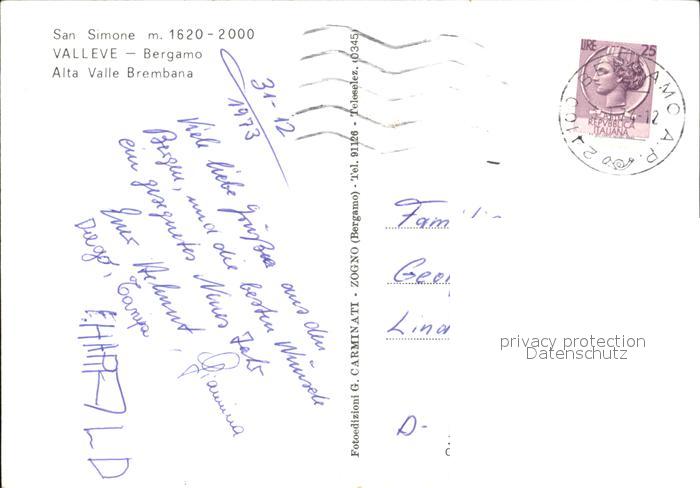 San Simone m. 1620-2000
VALLEVE - Bergamo
Alta Valle Brembana
31-12
1973
Viele liebe Grüße aus den
Bergen, und die besten Wünsche
ein gesegnetes Neues Jahr
Euer Helmut, Giannina
Diego,
HARALD
Fotoedizioni G. CARMINATI - ZOGNO (Bergamo) - Tel. 91126 - Teleselez. (0345)
LIRE 25
REPVBBLICA
ITALIANA
BERGAMO A.P.
24100
Famili
Geor
Lind
D-
privacy protection
Datenschutz